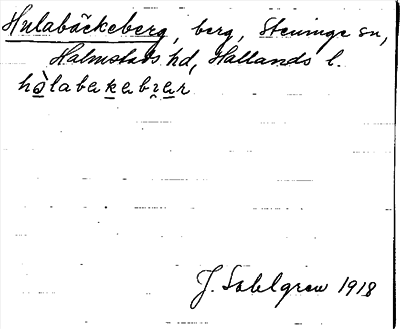 Hulabäckeberg, berg, Steninge sn,
Halmstads hd, Hallands l.
hòlabakabrar
J. Sahlgren 1918